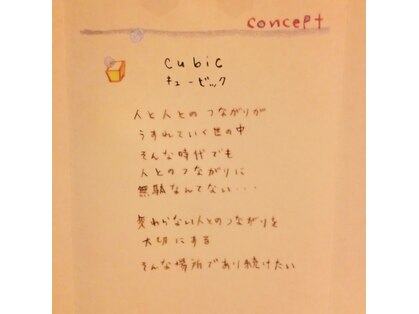 concept
cubic
キュービック
人と人とのつながりが
うすれていく世の中
そんな時代でも
人とのつながりに
無駄なんてない・・・
変わらない人とのつながりを
大切にする
そんな場所であり続けたい